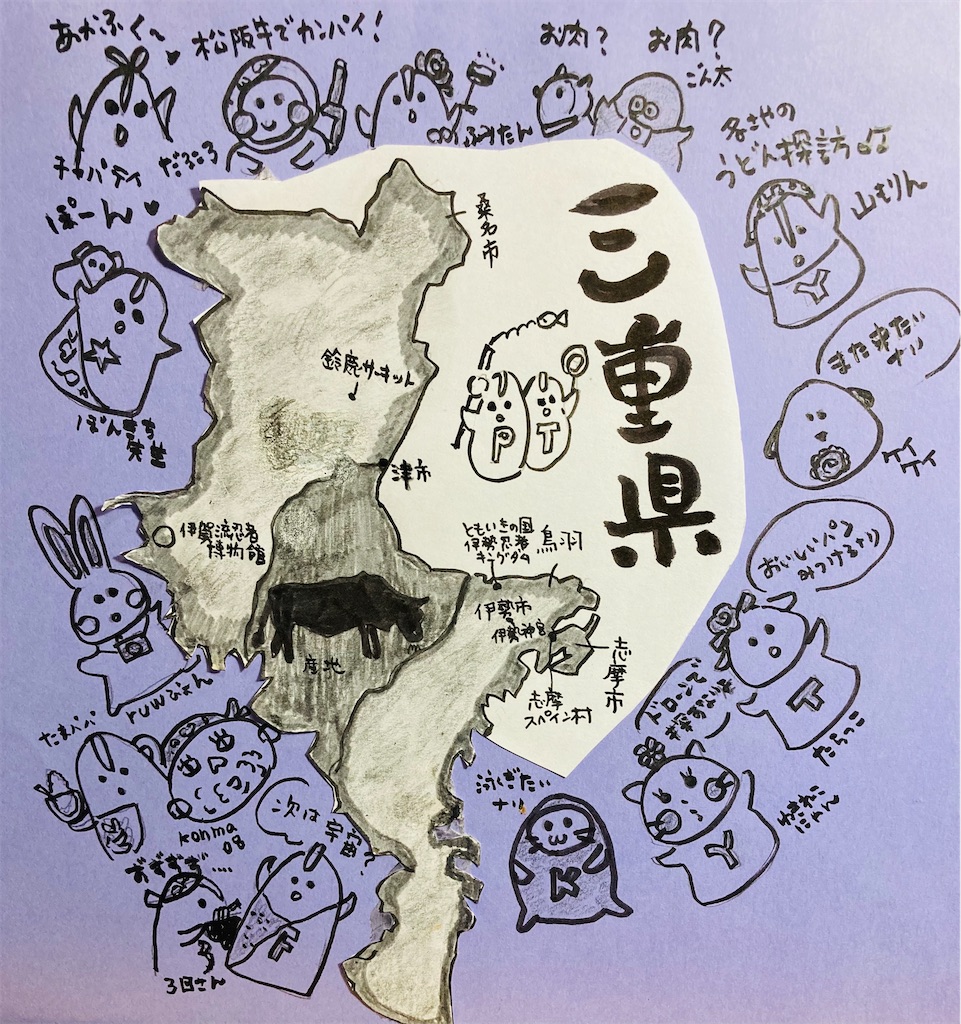 あかふく〜
松阪牛でカンパイ!
お肉?
お肉?
ごん太
チャパティ
だふころ
ふみたん
名さやの
うどん探訪♫
山むりん
Y
ぽーん
ぽんきち
三重県
桑名市
鈴鹿サーキット
P T
津市
また来たい
ナリ
ケイ
ケイ
伊賀流忍者
博物館
ともいきの国
伊勢忍者
キングダム
鳥羽
伊勢市
伊勢神宮
産地
志摩市
志摩
スペイン村
おいしいパン
みつけるナリ
T
たらっこ
ドローンで
Y
ruwぴょん
たまパパ
konma
08
次は宇宙?
おずずずず....
F
3日さん
泳ぎたい
ナリ
K